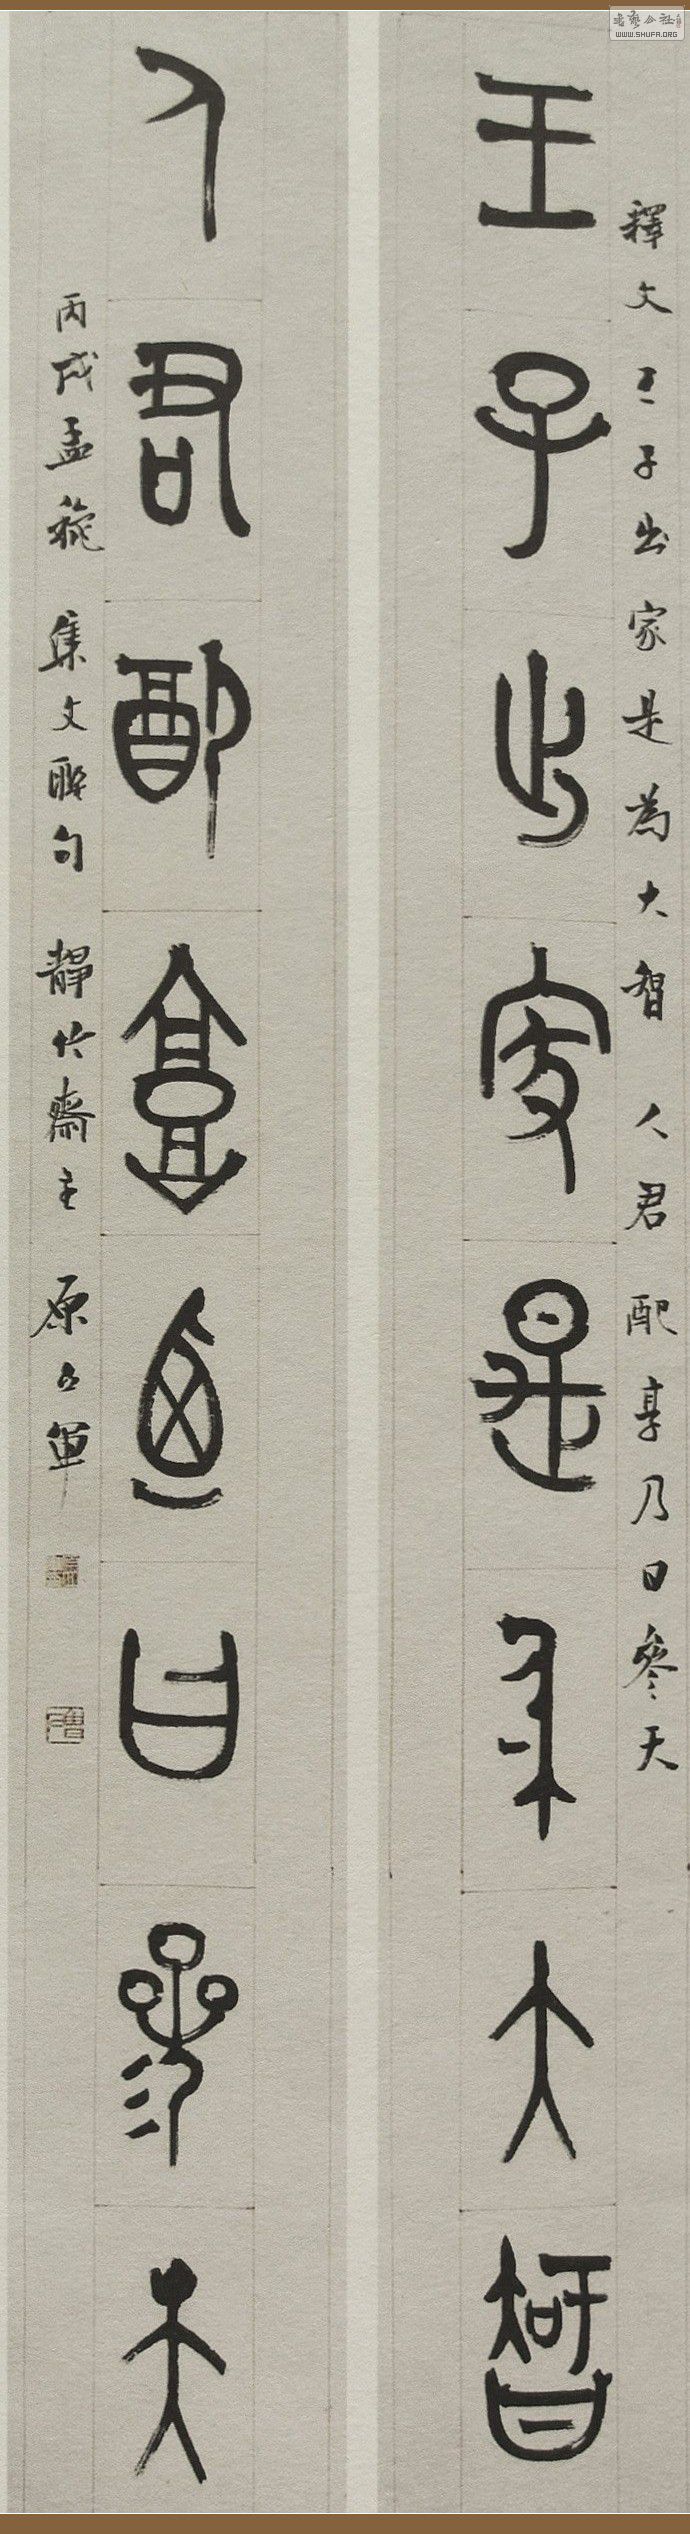 書藝公社
WWW.SHUFA.ORG
釋文 王子出家是為大智 人君配享乃曰參天
王子出家是為大智
人君配享乃曰參天
丙戌孟秋 集文聯句 靜竹齋主 原